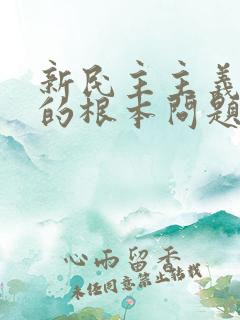 新民主主义
的根本问题
心雨留香
未经同意禁止转载